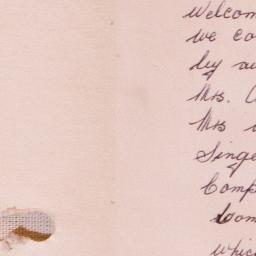 Welcom
we co
by au
Mrs.
Mrs
Singe
Comp
com
whic